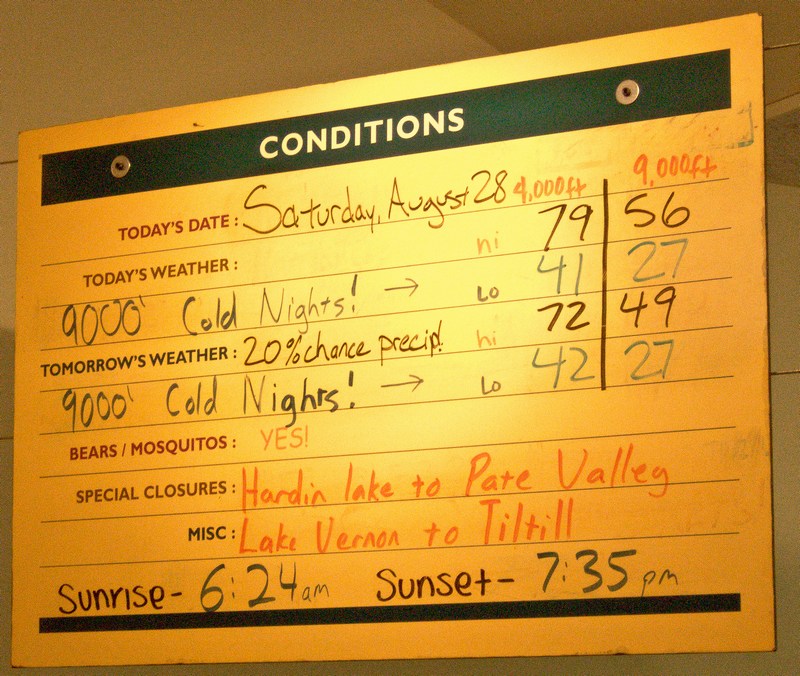 CONDITIONS
TODAY'S DATE: Saturday, August 28 4,000ft 9,000ft
hi 79 56
TODAY'S WEATHER:
9000' Cold Nights! → Lo 41 27
TOMORROW'S WEATHER: 20% chance precip! hi 72 49
9000' Cold Nights! → Lo 42 27
BEARS / MOSQUITOS: YES!
SPECIAL CLOSURES: Hardin lake to Pate Valley
MISC: Lake Vernon to Tiltill
Sunrise- 6:24am Sunset- 7:35pm